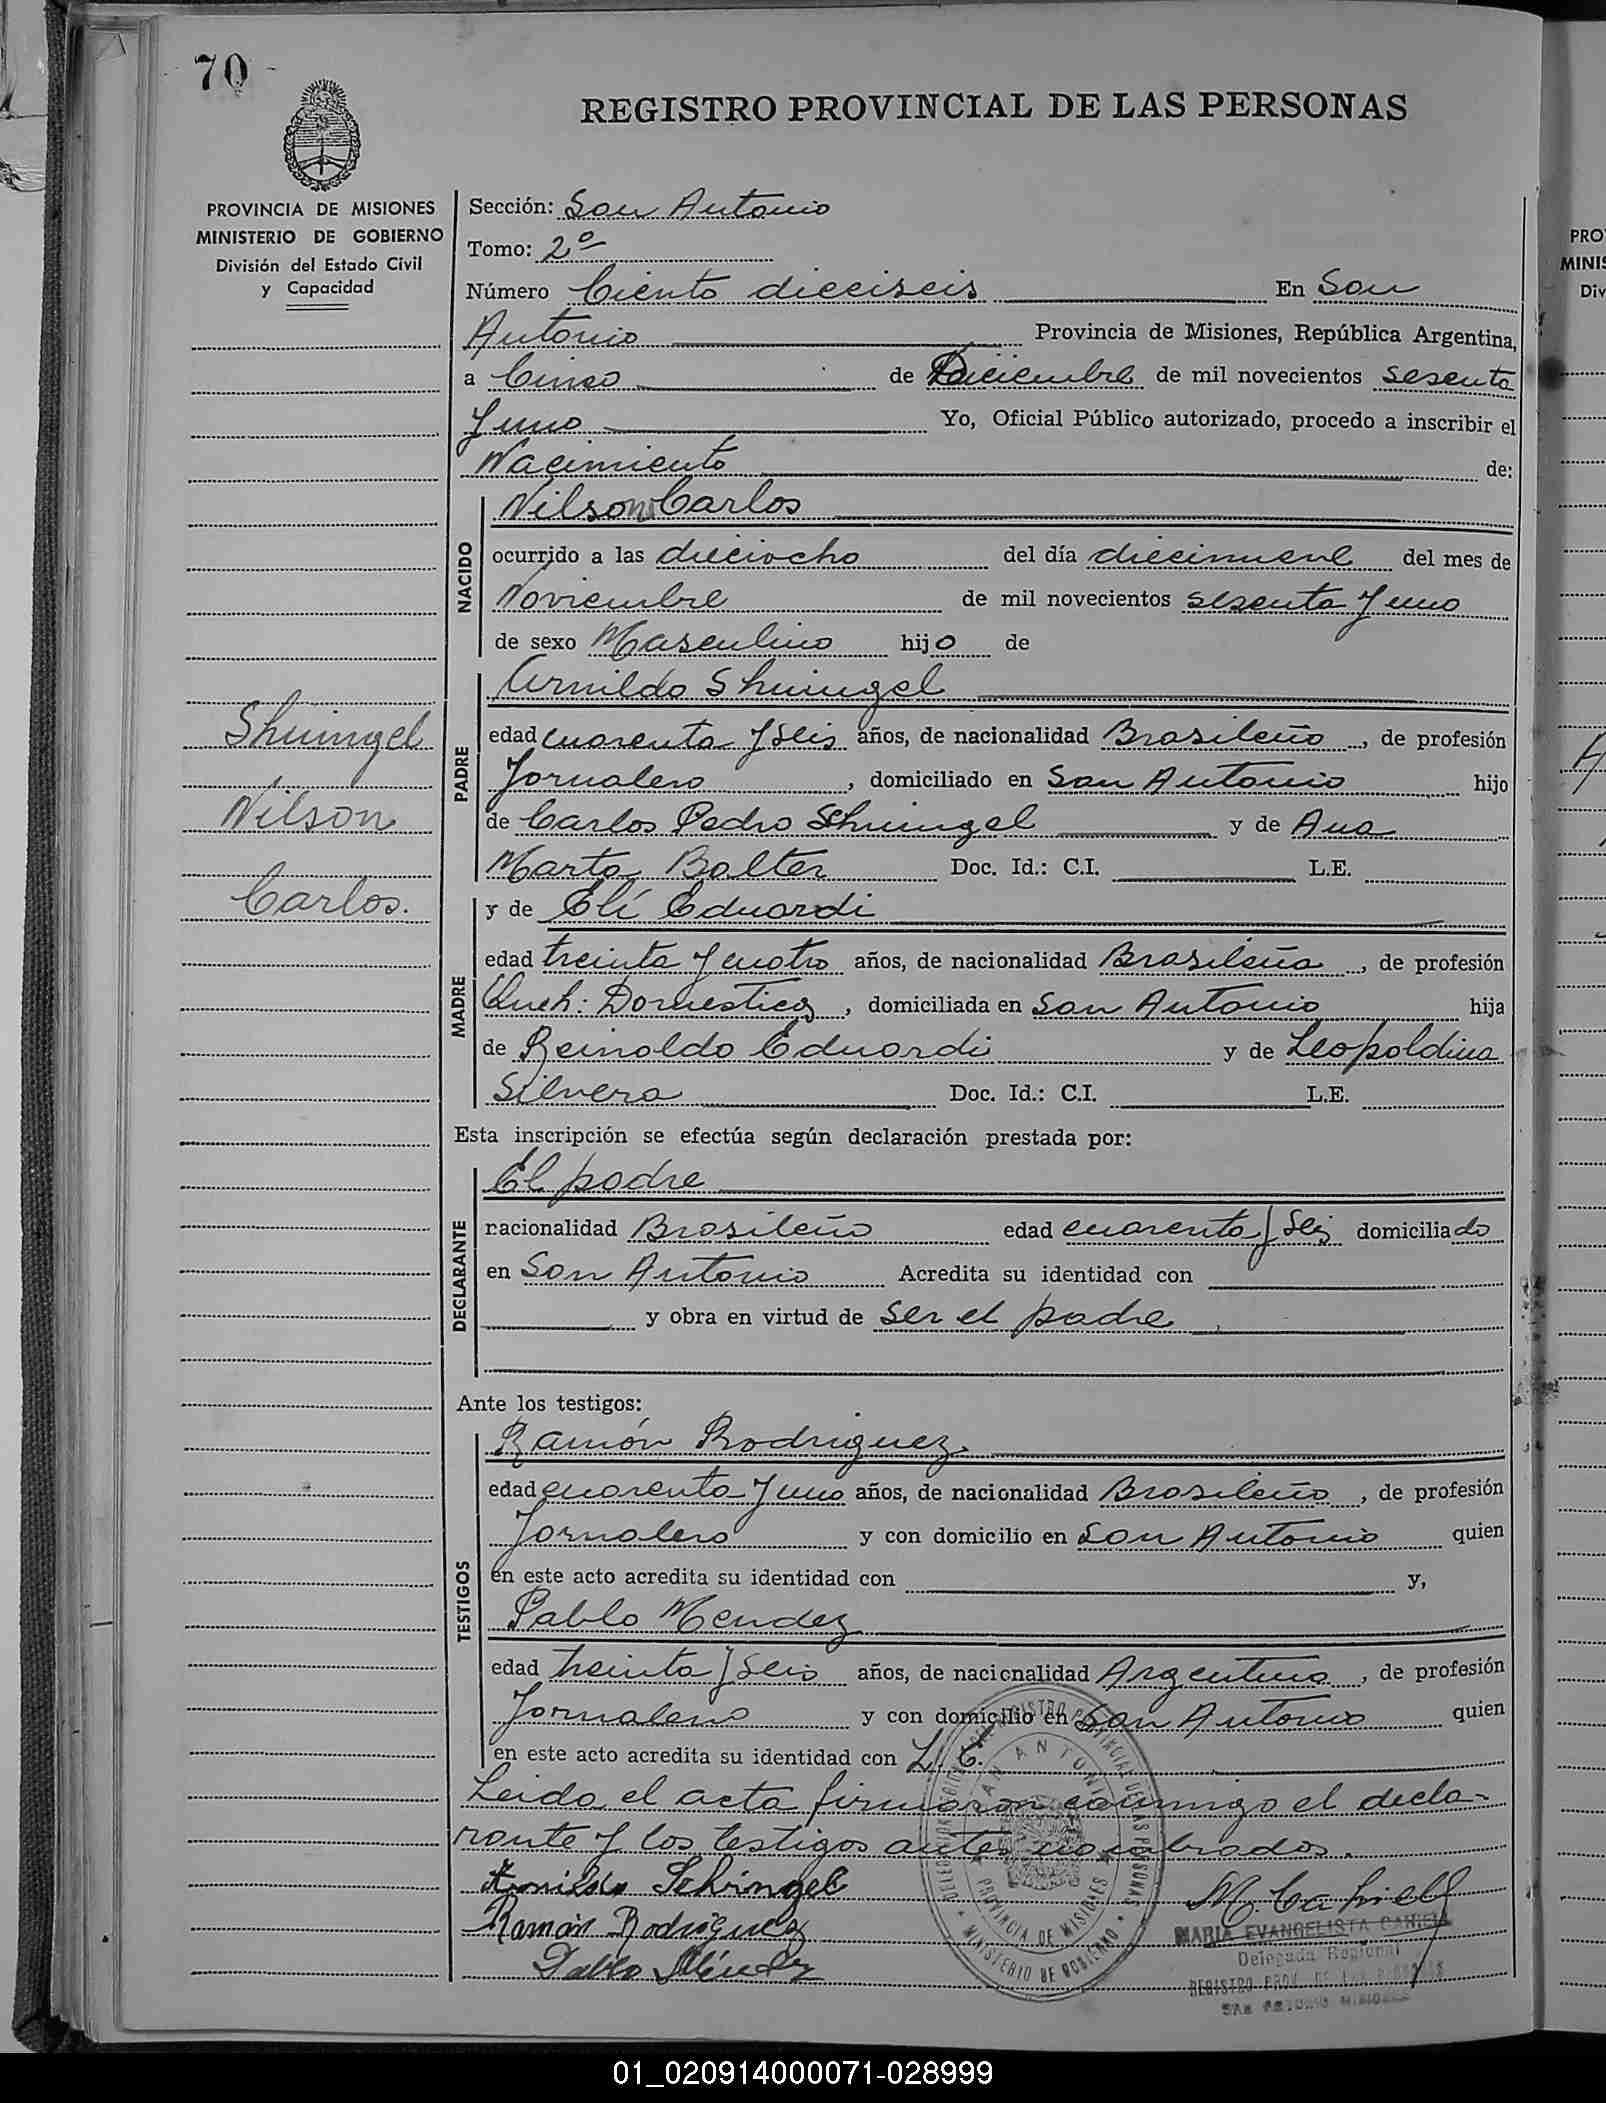 70
REGISTRO PROVINCIAL DE LAS PERSONAS
PROVINCIA DE MISIONES
MINISTERIO DE GOBIERNO
División del Estado Civil
y Capacidad
Sección: San Antonio
Tomo: 2º
Número Ciento dieciseis En San
Antonio Provincia de Misiones, República Argentina,
a Cinco de Diciembre de mil novecientos sesenta
y uno Yo, Oficial Público autorizado, procedo a inscribir el
Nacimiento de:
NACIDO
Nilson Carlos
ocurrido a las dieciocho del día diecinueve del mes de
Noviembre de mil novecientos sesenta y uno
de sexo Masculino hijo de
Shuingel
Nilson
Carlos.
PADRE
Arnildo Shuingel
edad cuarenta y seis años, de nacionalidad Brasileño, de profesión
Jornalero, domiciliado en San Antonio hijo
de Carlos Pedro Shuingel y de Ana
Marta Balter Doc. Id.: C.I. L.E.
MADRE
y de Elí Eduardi
edad treinta y cuatro años, de nacionalidad Brasileña, de profesión
Queh: Domesticos, domiciliada en San Antonio hija
de Reinoldo Eduardi y de Leopoldina
Silvera Doc. Id.: C.I. L.E.
Esta inscripción se efectúa según declaración prestada por:
DECLARANTE
El padre
nacionalidad Brasileño edad cuarenta y seis domiciliado
en San Antonio Acredita su identidad con
y obra en virtud de ser el padre
Ante los testigos:
TESTIGOS
Ramón Rodriguez
edad cuarenta y uno años, de nacionalidad Brasileño, de profesión
Jornalero y con domicilio en San Antonio quien
en este acto acredita su identidad con y,
Pablo Mendez
edad treinta y seis años, de nacionalidad Argentino, de profesión
Jornalero y con domicilio en San Antonio quien
en este acto acredita su identidad con
Leida el acta firmaron conmigo el decla-
rante y los testigos antes nombrados.
Arnildo Schingel
M. Cahiell
Ramón Rodriguez
Pablo Méndez
REGISTRO PROVINCIAL DE LAS PERSONAS
SAN ANTONIO
PROVINCIA DE MISIONES
MINISTERIO DE GOBIERNO
MARIA EVANGELISTA
Delegada Regional
REGISTRO PROV. DE LAS PERSONAS
SAN ANTONIO MISIONES
PRO
MINIS
Div
01_020914000071-028999